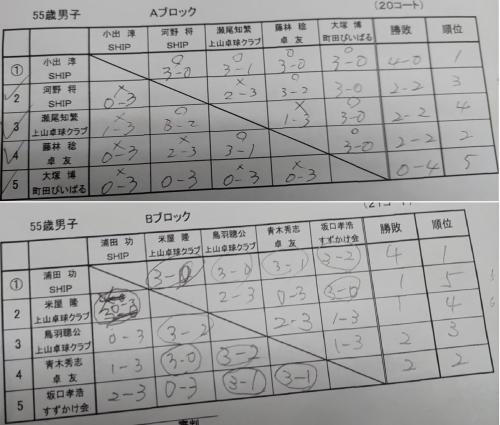 55歳男子 Aブロック (20コート)
小出 淳 SHIP 河野 将 SHIP 瀬尾知繁 上山卓球クラブ 藤林 稔 卓友 大塚 博 町田びいぱる 勝敗 順位
① 小出 淳 SHIP 3-0 3-1 3-0 3-0 4-0 1
2 河野 将 SHIP 0-3 2-3 3-2 3-0 2-2 3
3 瀬尾知繁 上山卓球クラブ 1-3 3-2 1-3 3-0 2-2 4
4 藤林 稔 卓友 0-3 2-3 3-1 3-0 2-2 2
5 大塚 博 町田びいぱる 0-3 0-3 0-3 0-3 0-4 5
55歳男子 Bブロック (21コート)
浦田 功 SHIP 米屋 隆 上山卓球クラブ 鳥羽聰公 上山卓球クラブ 青木秀志 卓友 坂口孝浩 すずかけ会 勝敗 順位
① 浦田 功 SHIP 3-0 3-0 3-1 3-2 4 1
2 米屋 隆 上山卓球クラブ 2-3 0-3 3-0 1 5
3 鳥羽聰公 上山卓球クラブ 0-3 3-2 2-3 1-3 1 4
4 青木秀志 卓友 1-3 3-0 3-2 1-3 2 3
5 坂口孝浩 すずかけ会 2-3 0-3 3-1 3-1 2 2